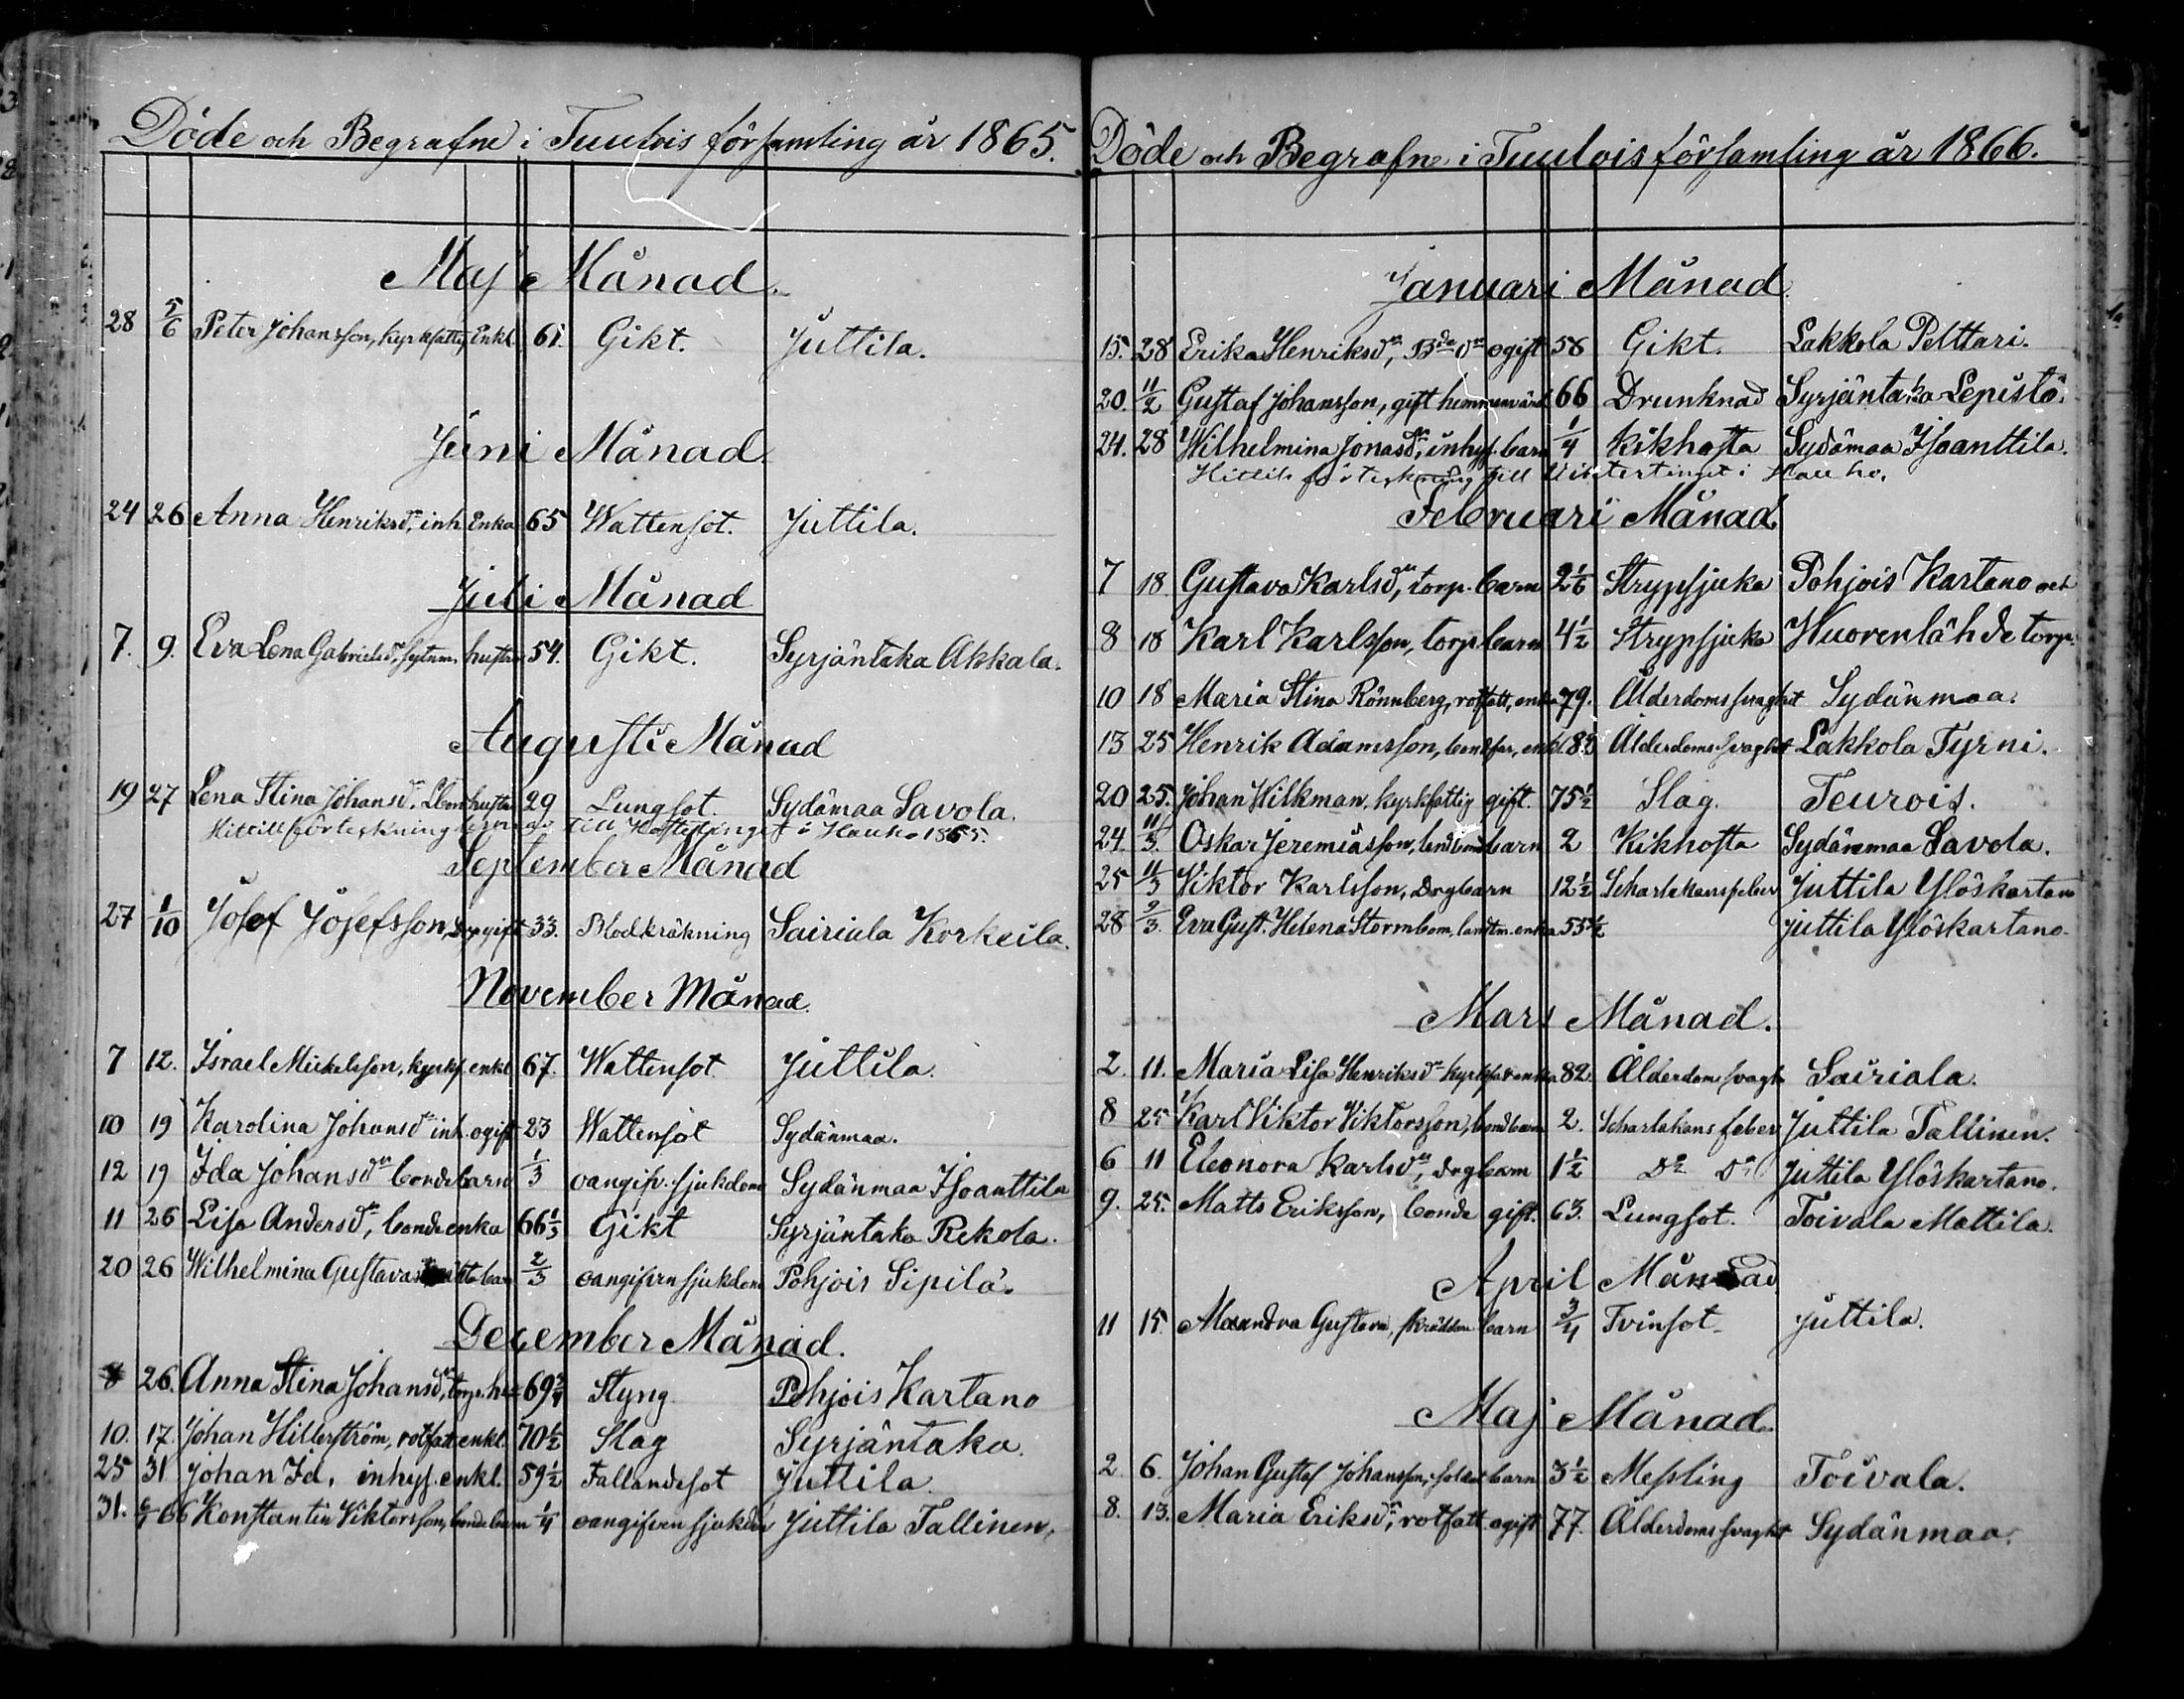 Döde och Begrafne i Tuulois församling år 1865.
Maj Månad.
28 5/6 Peter Johansson, kyrkfattig Enkl. 61. Gikt. Juttila.
Juni Månad.
24 26 Anna Henriksdr, inh. Enka 65 Wattensot. Juttila.
Juli Månad
7. 9. Eva Lena Gabrielsdr, sytnm. hustru 54. Gikt. Syrjäntaka Akkala.
Augusti Månad
19 27 Lena Stina Johansdr. hustru 29 Lungsot. Sydämaa Savola.
Hittill förteckning till Hösttinget i Hauho 1865.
September Månad
27 1/10 Josef Josefsson, Drg gift 33. Blodkräkning Sairiala Korkeila.
November Månad.
7 12. Israel Mickelsson, kyrkf. enkl 67. Wattensot. Juttila.
10 19 Karolina Johansdr inh. ogift 23 Wattensot Sydänmaa.
12 19 Ida Johansdr bondebarn 1/3 oangifv. sjukdom Sydänmaa Isoanttila
11 26 Lisa Andersdr, bonde enka 66 1/3 Gikt Syrjäntaka Rekola.
20 26 Wilhelmina Gustava 2/3 oangifven sjukdom Pohjois Sipilä.
December Månad.
8 26. Anna Stina Johansdr, torp. hu 69 3/4 Styng Pohjois Kartano
10. 17. Johan Hillerström, rotfatt enkl. 70 1/2 Slag Syrjäntaka.
25 31 Johan Id. inhys. enkl. 59 1/2 Fallandesot Juttila.
31. 6/1 66 Konstantin Viktorsson, bonde barn 1/4 oangifven sjukdom Juttila Tallinen,
Döde och Begrafne i Tuulois församling år 1866.
Januari Månad.
15. 28 Erika Henriksdr, Bde dr ogift 58 Gikt. Lakkola Pelttari.
20. 11/2 Gustaf Johansson, gift hemmanvärd 66 Drunknad Syrjäntaka Lepistö.
24. 28 Wilhelmina Jonasdr, inhys. barn 1/4 kikhosta Sydämaa Isoanttila.
Hittils förteckning till Vintertinget i Hauho.
Februari Månad.
7 18. Gustava Karlsdr, torp. barn 2 1/6 Strypsjuka Pohjois Kartano och
8 18 Karl Karlsson, torp. barn 4 1/2 Strypsjuka Wuorenlähde torp.
10 18 Maria Stina Rönnberg, rotfatt, enka 79. Ålderdomssvaghet Sydänmaa.
13 25 Henrik Adamsson, bondfar, enkl. Ålderdomssvaghet Lakkola Tyrni.
20 25. Johan Wilkman, kyrkfattig gift. 75 1/2 Slag. Teurois.
24. 11/3. Oskar Jeremiasson, barn 2 Kikhosta Sydänmaa Savola.
25 11/3 Viktor Karlsson, Drgbarn 12 1/2 Scharlakansfeber Juttila Ylöskartano
28 9/3. Eva Gust. Helena Stormbom, lantm. enka 55 1/2 Juttila Ylöskartano.
Mars Månad.
2. 11. Maria Lisa Henriksdr kyrkfat enka 82 Ålderdomssvagh Sairiala.
8 25 Karl Viktor Viktorsson, bondbarn 2. Scharlakans feber Juttila Tallinen.
6 11 Eleonora Karlsdr, Drgbarn 1 1/2 Do Do Juttila Ylöskartano.
9. 25. Matts Eriksson, bonde gift. 63. Lungsot. Toivala Mattila.
April Månad
11 15. Alexandra Gustava, skräddare barn 3/4 Tvinsot Juttila.
Maj Månad.
2. 6. Johan Gustaf Johansson, soldat barn 3 1/2 Messling Toivala.
8. 13. Maria Eriksdr, rotfatt. ogift 77. Ålderdomssvaght Sydänmaa.